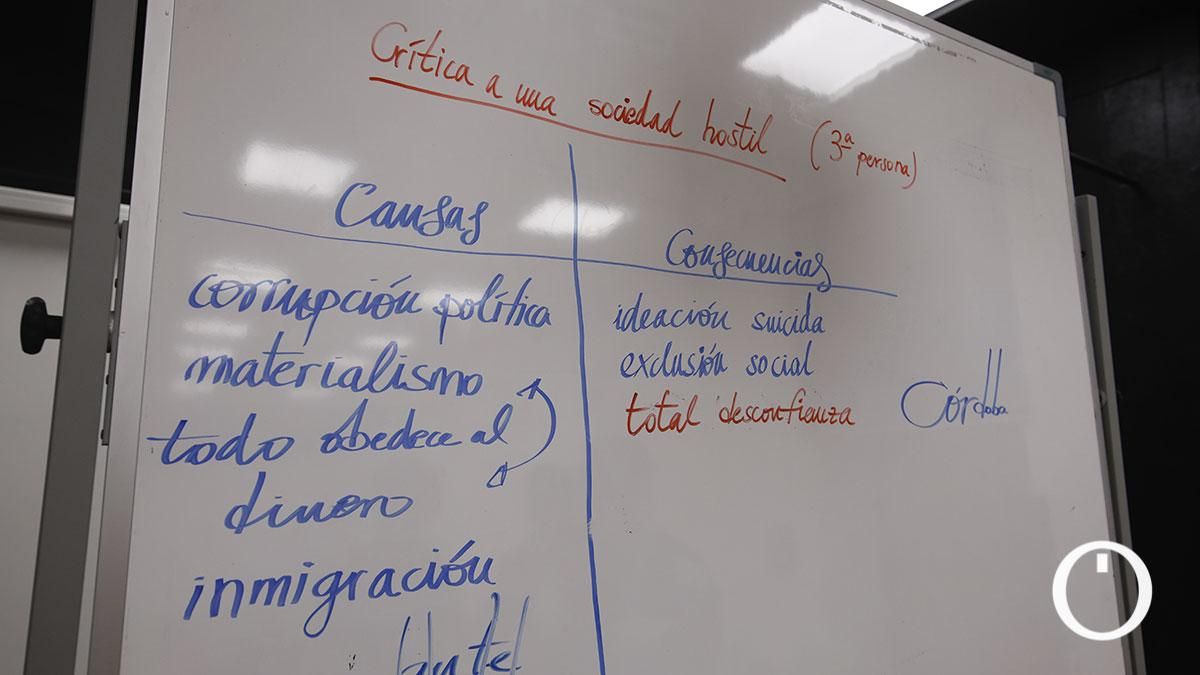 Crítica a una sociedad hostil (3ª persona)
Causas
corrupción política
materialismo
todo obedece al
dinero
inmigración
Consecuencias
ideación suicida
exclusión social
total desconfianza
Córdoba